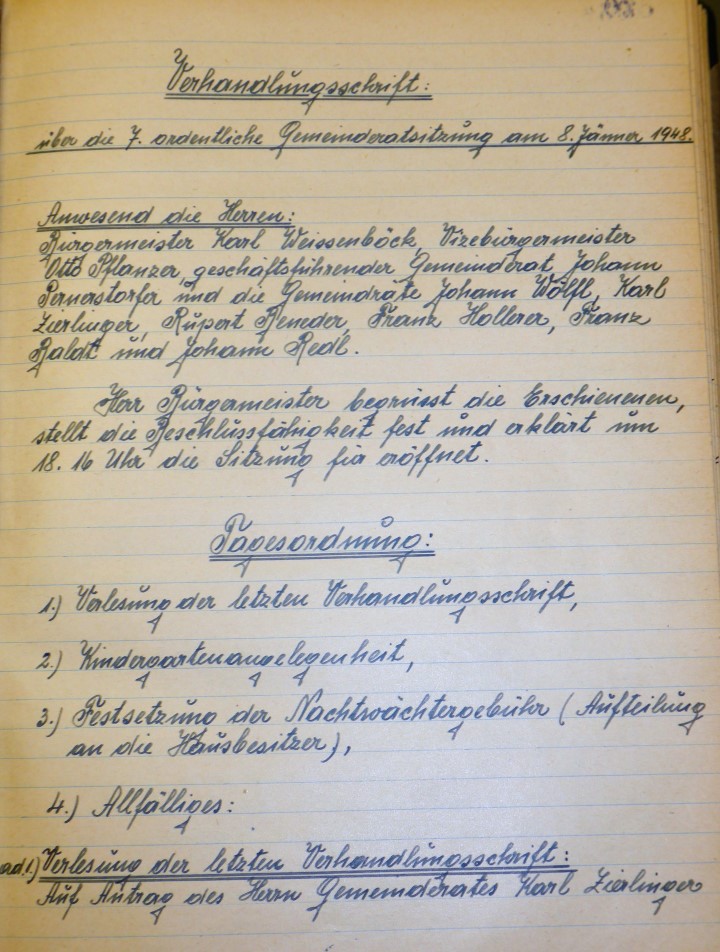 Verhandlungsschrift:
über die 7. ordentliche Gemeinderatsitzung am 8. Jänner 1948.
Anwesend die Herren:
Bürgermeister Karl Weissenböck, Vizebürgermeister
Otto Pflanzer, geschäftsführender Gemeinderat Johann
Pernerstorfer und die Gemeindräte Johann Wölfl, Karl
Zierlinger, Rupert Beneder, Franz Hollerer, Franz
Raldt und Johann Redl.
Herr Bürgermeister begrüsst die Erschienenen,
stellt die Beschlussfähigkeit fest und erklärt um
18.16 Uhr die Sitzung für eröffnet.
Tagesordnung:
1.) Verlesung der letzten Verhandlungsschrift,
2.) Kindergartenangelegenheit,
3.) Festsetzung der Nachtwächtergebühr (Aufteilung
an die Hausbesitzer),
4.) Allfälliges:
ad.1.) Verlesung der letzten Verhandlungsschrift:
Auf Antrag des Herrn Gemeinderates Karl Zierlinger